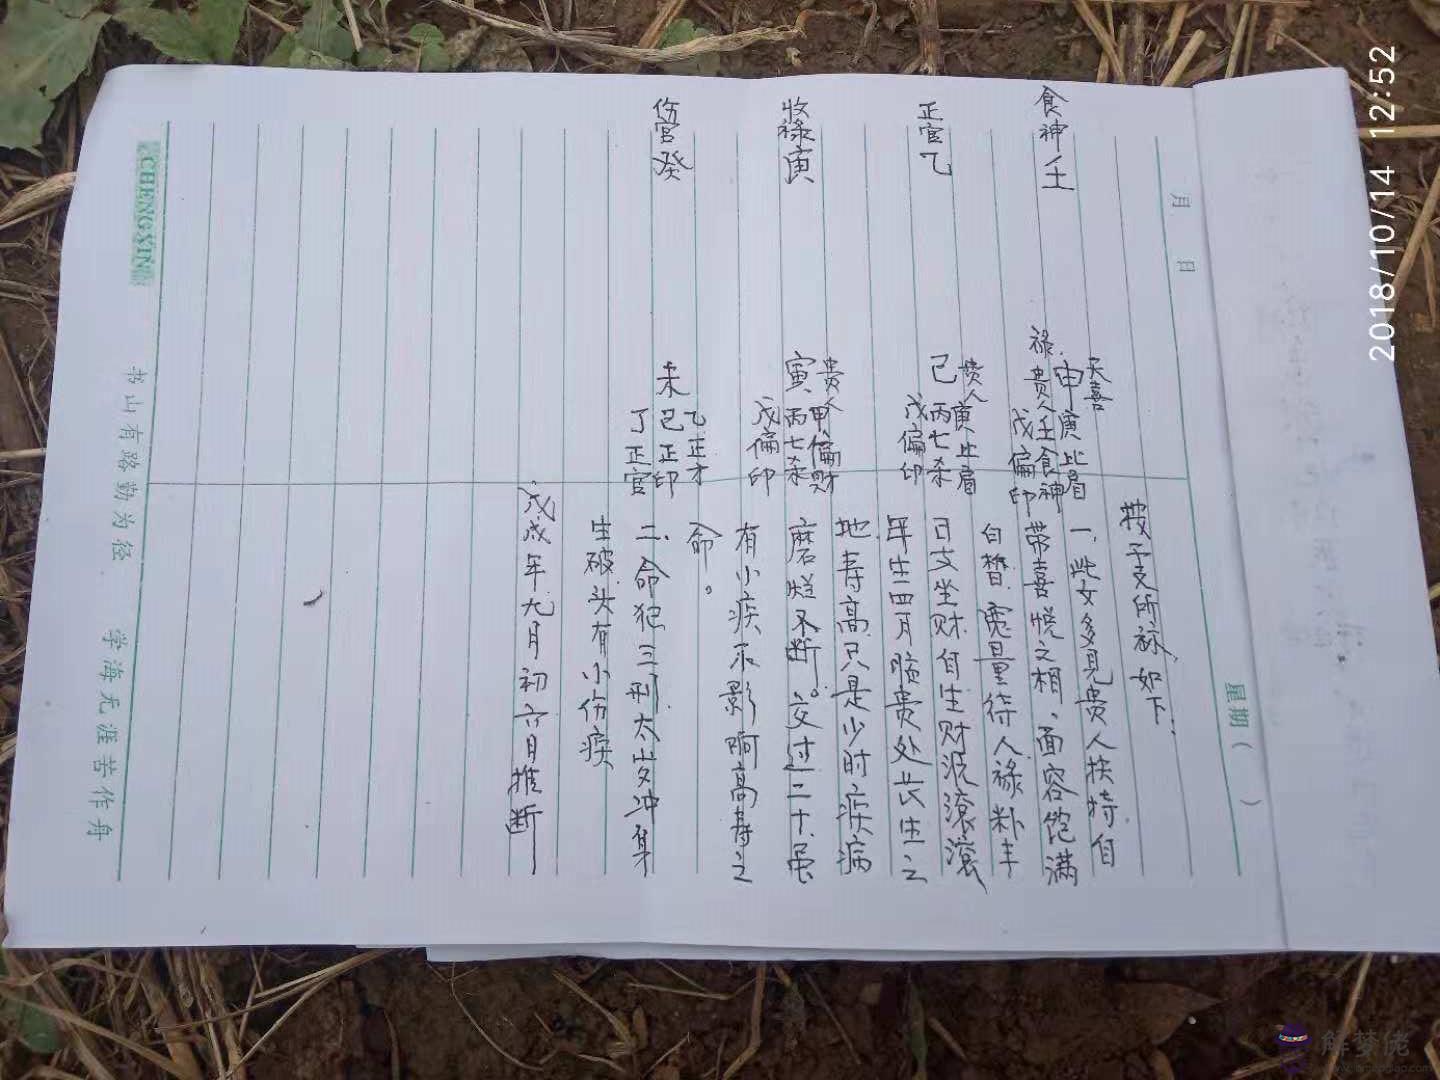 食神 壬
天喜
申 庚比肩
禄.贵人 壬食神
戊偏印
正官 乙
贵人 庚比肩
巳 丙七杀
戊偏印
收禄 庚
贵人 甲偏财
寅 丙七杀
戊偏印
伤官 癸
未
乙正才
己正印
丁正官
按干支所禄如下.
一,此女多见贵人扶持自
带喜悦之相、面容饱满
白替.宽量待人禄粮丰
日支坐财.自生财源滚滚
年生四月胎贵处长生之
地.寿高.只是少时疾病
磨烂不断。交过二十.虽
有小疾.不影响高寿之
命。
二.命犯三刑太岁冲身
生破.头有小伤痪
戊戌年九月初六日推断
月 日
星期（ ）
CHENGXIN
书山有路勤为径 学海无涯苦作舟
2018/10/14 12:52
解梦佬